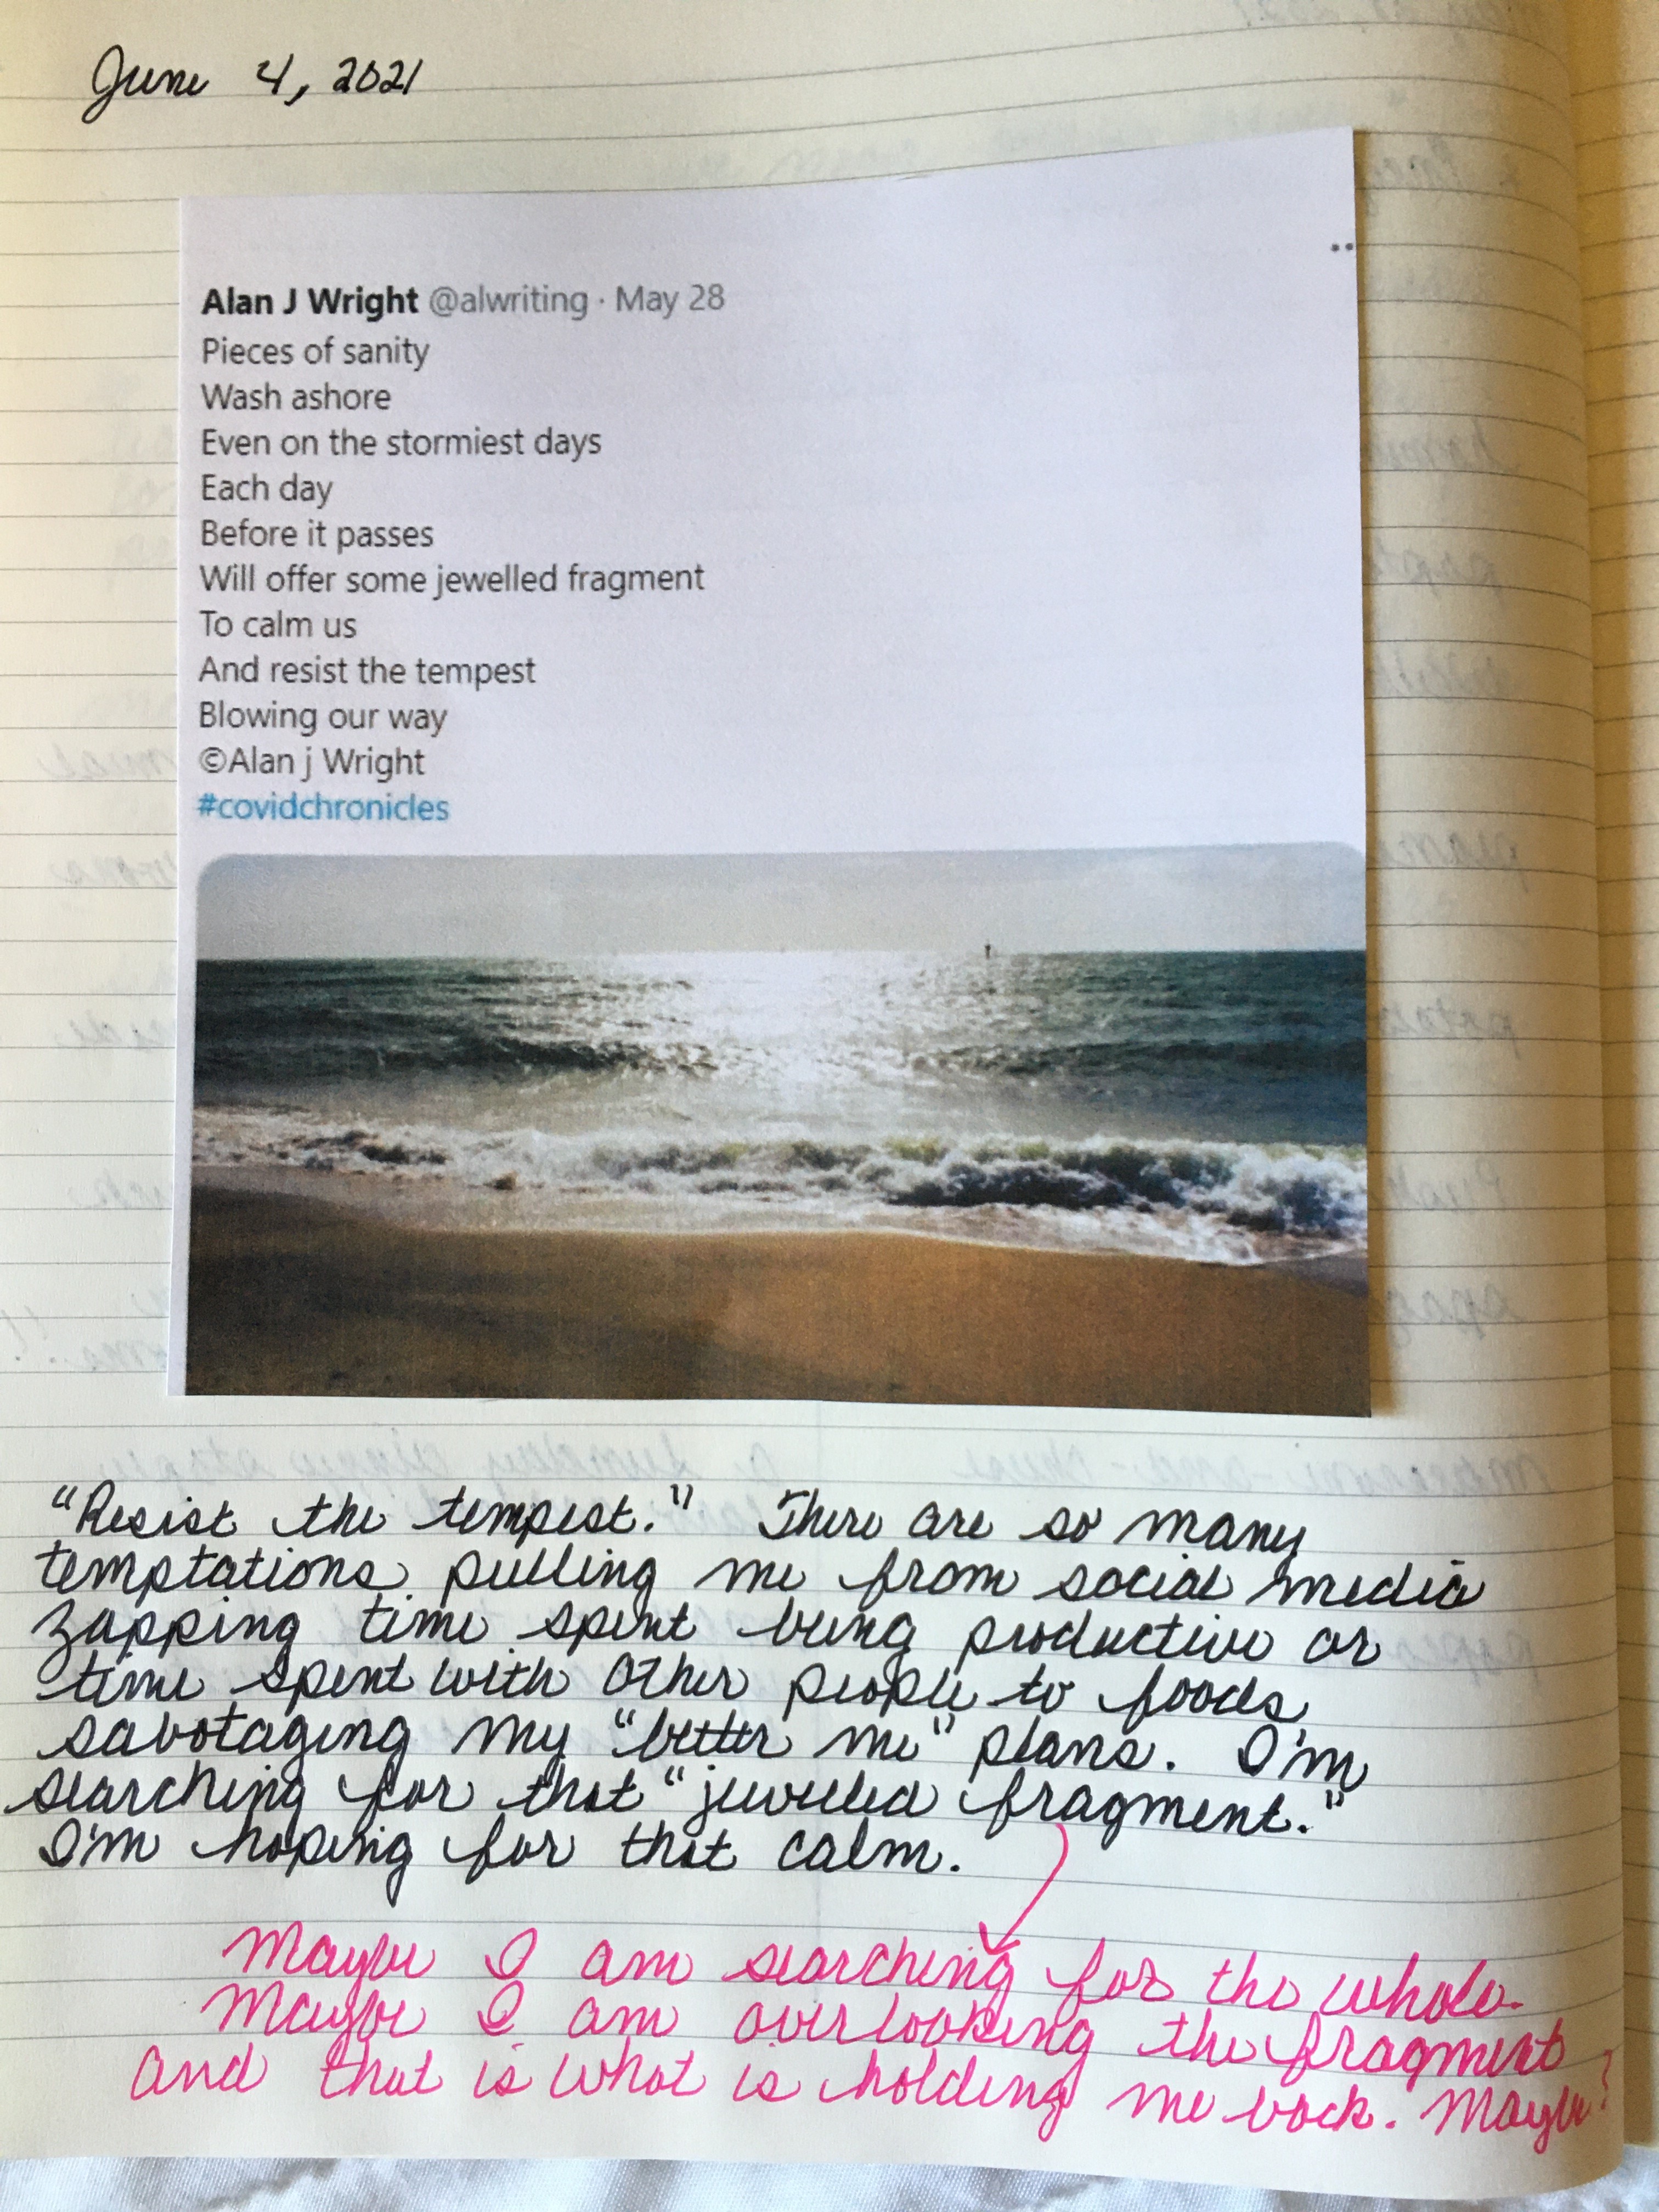 June 4, 2021
Alan J Wright @alwriting · May 28
Pieces of sanity
Wash ashore
Even on the stormiest days
Each day
Before it passes
Will offer some jewelled fragment
To calm us
And resist the tempest
Blowing our way
©Alan j Wright
#covidchronicles
"Resist the tempest." There are so many
temptations pulling me from social media
zapping time spent being productive or
time spent with other people to foods
sabotaging my "better me" plans. I'm
searching for that "jeweled fragment."
I'm hoping for that calm.
Maybe I am searching for the whole.
Maybe I am overlooking the fragment
and that is what is holding me back. Maybe?